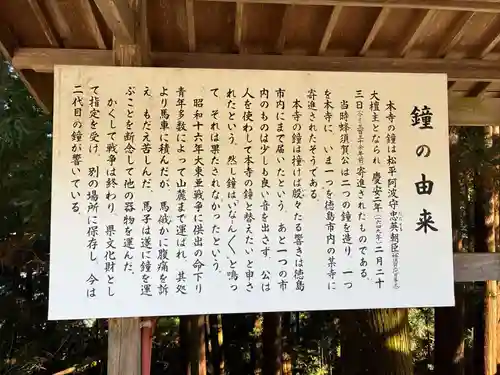 鐘の由来
本寺の鐘は松平阿波守忠英朝臣
大檀主となられ 慶安二年(一六四九年)二月二十
三日 寄進されたものである。
当時蜂須賀公は二つの鐘を造り、一つ
を本寺に、いま一つを徳島市内の某寺に
寄進されたそうである。
本寺の鐘は撞けば殷々たる響きは徳島
市内にまで届いたという。あと一つの市
内のものは少しも良い音を出さず、公は
人を使わして本寺の鐘と替えたいと申さ
れたという。然し鐘はいなん〱と鳴っ
て、それは果たされなかったという。
昭和十六年大東亜戦争に供出の命下り
青年多数によって山麓まで運ばれ、其処
より馬車に積んだが、馬俄かに腹痛を訴
え、もだえ苦しんだ。馬子は遂に鐘を運
ぶことを断念して他の器物を運んだ。
かくして戦争は終わり、県文化財とし
て指定を受け、別の場所に保存し、今は
二代目の鐘が響いている。